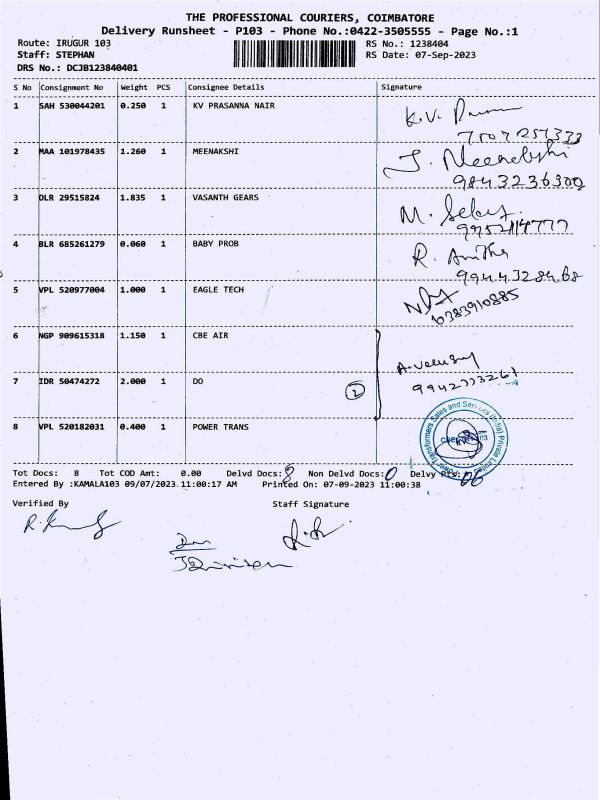 THE PROFESSIONAL COURIERS, COIMBATORE
Delivery Runsheet - P103 - Phone No.:0422-3505555 - Page No.:1
Route: IRUGUR 103 RS No.: 1238404
Staff: STEPHAN RS Date: 07-Sep-2023
DRS No.: DCJB123840401
S No Consignment No Weight PCS Consignee Details Signature
1 SAH 530044201 0.250 1 KV PRASANNA NAIR K.V.
2 MAA 101978435 1.260 1 MEENAKSHI J. Meenakshi
9843236300
3 DLR 29515824 1.835 1 VASANTH GEARS M.
4 BLR 685261279 0.060 1 BABY PROB R. Anitha
9944328468
5 VPL 520977004 1.000 1 EAGLE TECH
6383910885
6 NGP 909615318 1.150 1 CBE AIR
7 IDR 50474272 2.000 1 DO 2
8 VPL 520182031 0.400 1 POWER TRANS
Power Transformers Sales and Services (India) Private Limited
Tot Docs: 8 Tot COD Amt: 0.00 Delvd Docs: 8 Non Delvd Docs: 0 Delvy Pts: 06
Entered By :KAMALA103 09/07/2023 11:00:17 AM Printed On: 07-09-2023 11:00:38
Verified By Staff Signature